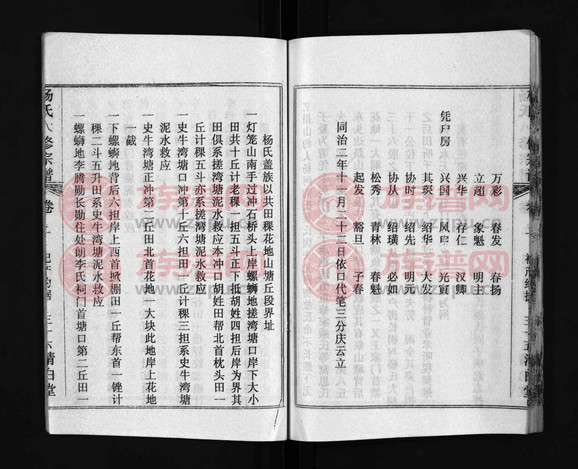 凭户房
万彩 春发 春扬
立超 象魁 明主
兴华 存仁 汉卿
兴国
其瑛 绍华 大发
协时 绍先 明元
协从 绍璜 必如
松秀 青林 春魁
起发 豁旦 子春
同治二年十一月二十二日依口代笔三分庆云立
杨氏盖族以共田稞花地山塘丘段界址
一灯笼山南手过冲石桥头上岸螺蛳地搓湾塘口岸下大小
田共十五丘计老稞一担五斗正下抵胡姓四担后岸为界其
田俱系搓湾塘泥水救应本冲口胡姓田帮北首枕头田一
丘计稞五斗亦系搓湾塘泥水救应
一史牛湾塘口十丘六担田一丘计稞三担系史牛湾塘
泥水救应
一史牛湾塘正冲第二丘田北首花地一大块此地岸上花地
一截
一下螺蛳地背后六担岸上西首掀棚田一丘帮东首一锉计
稞二斗五升田系史牛湾塘泥水救应
一螺蛳地李腾勋长勋住处前李氏祠门首塘口第二丘田一
杨氏六修宗谱
卷
清白堂